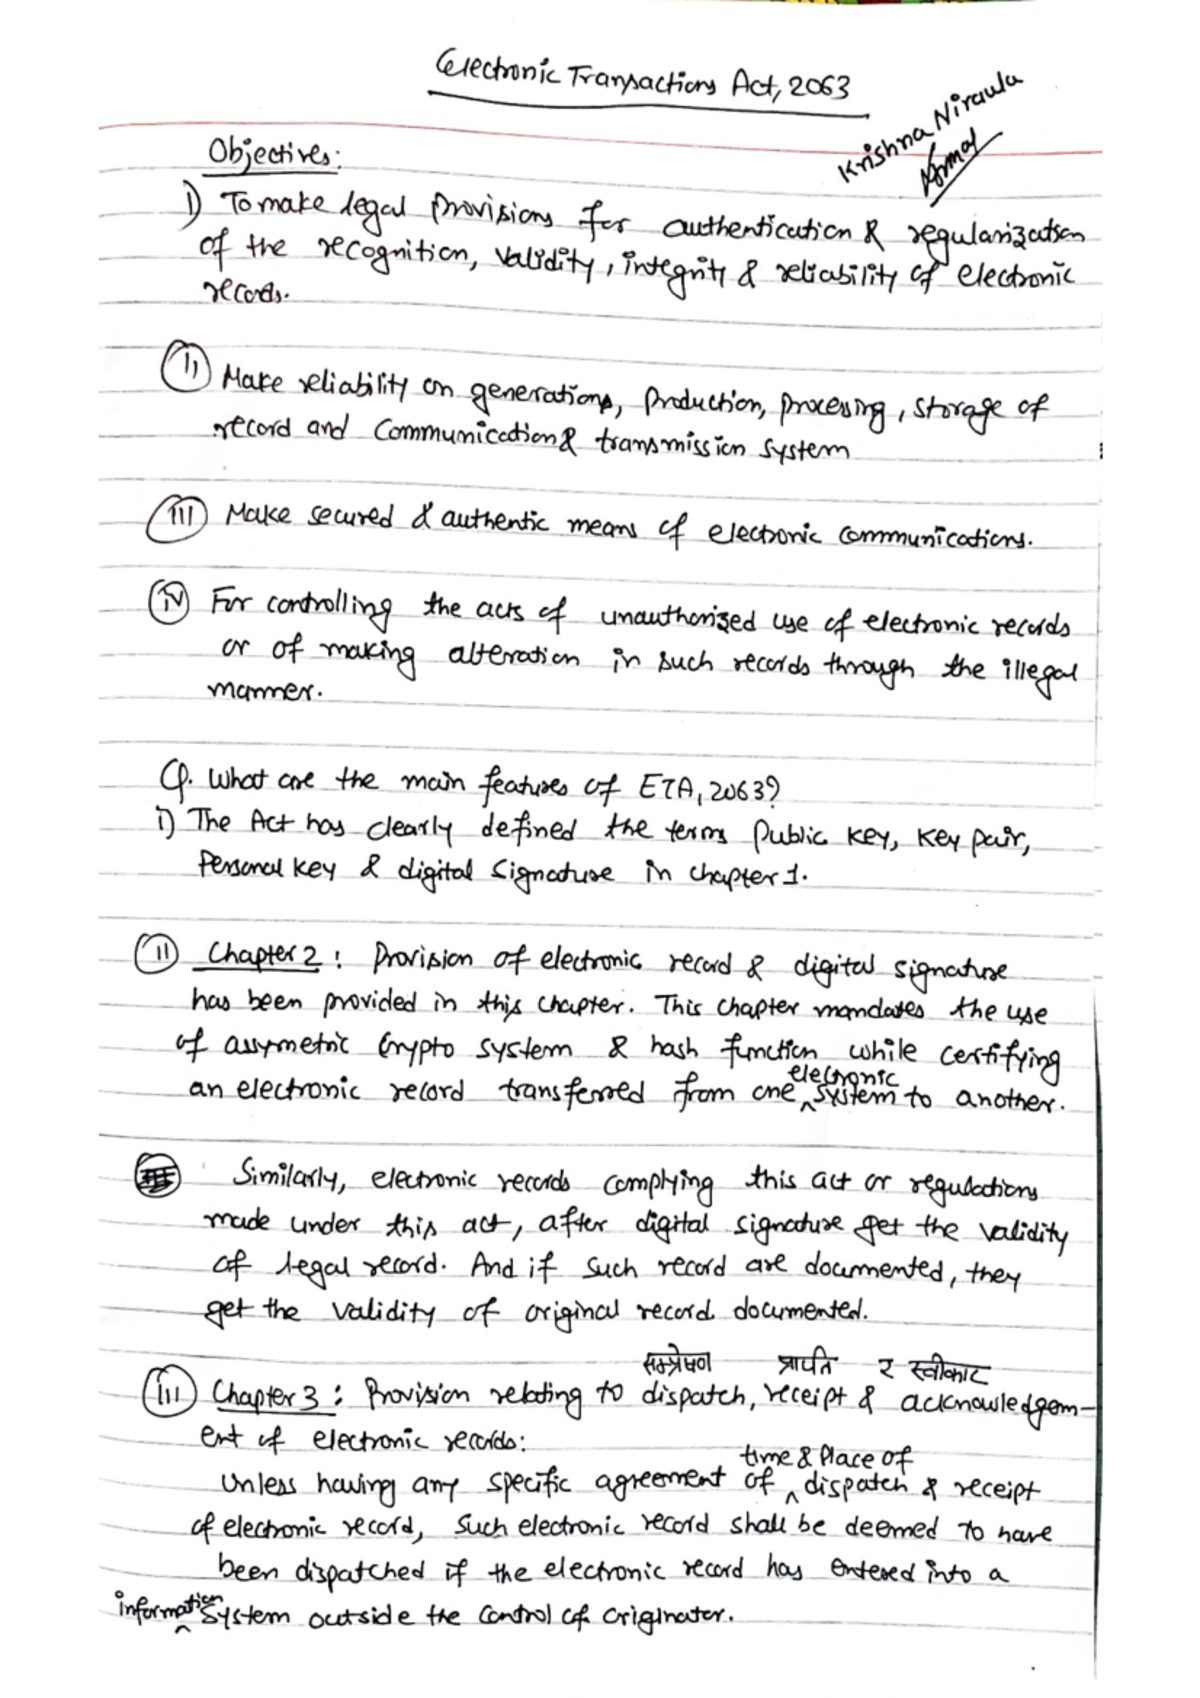 Electronic Transactions Act, 2063
Krishna Niraula
Objectives:
i) To make legal provisions for authentication & regularization
of the recognition, validity, integrity & reliability of electronic
records.
ii) Make reliability on generations, production, processing, storage of
record and communication & transmission system
iii) Make secured & authentic means of electronic communications.
iv) For controlling the acts of unauthorized use of electronic records
or of making alteration in such records through the illegal
manner.
Q. What are the main features of ETA, 2063?
i) The Act has clearly defined the terms Public Key, Key pair,
Personal Key & digital Signature in chapter 1.
ii) Chapter 2: Provision of electronic record & digital signature
has been provided in this chapter. This chapter mandates the use
of assymetric crypto system & hash function while certifying
an electronic record transferred from one electronic system to another.
Similarly, electronic records complying this act or regulations
made under this act, after digital signature get the validity
of legal record. And if such record are documented, they
get the validity of original record documented.
सम्प्रेषण प्राप्ति र स्वीकार
iii) Chapter 3: Provision relating to dispatch, receipt & acknowledgem-
ent of electronic records:
Unless having any specific agreement of time & place of dispatch & receipt
of electronic record, such electronic record shall be deemed to have
been dispatched if the electronic record has entered into a
information system outside the control of originator.